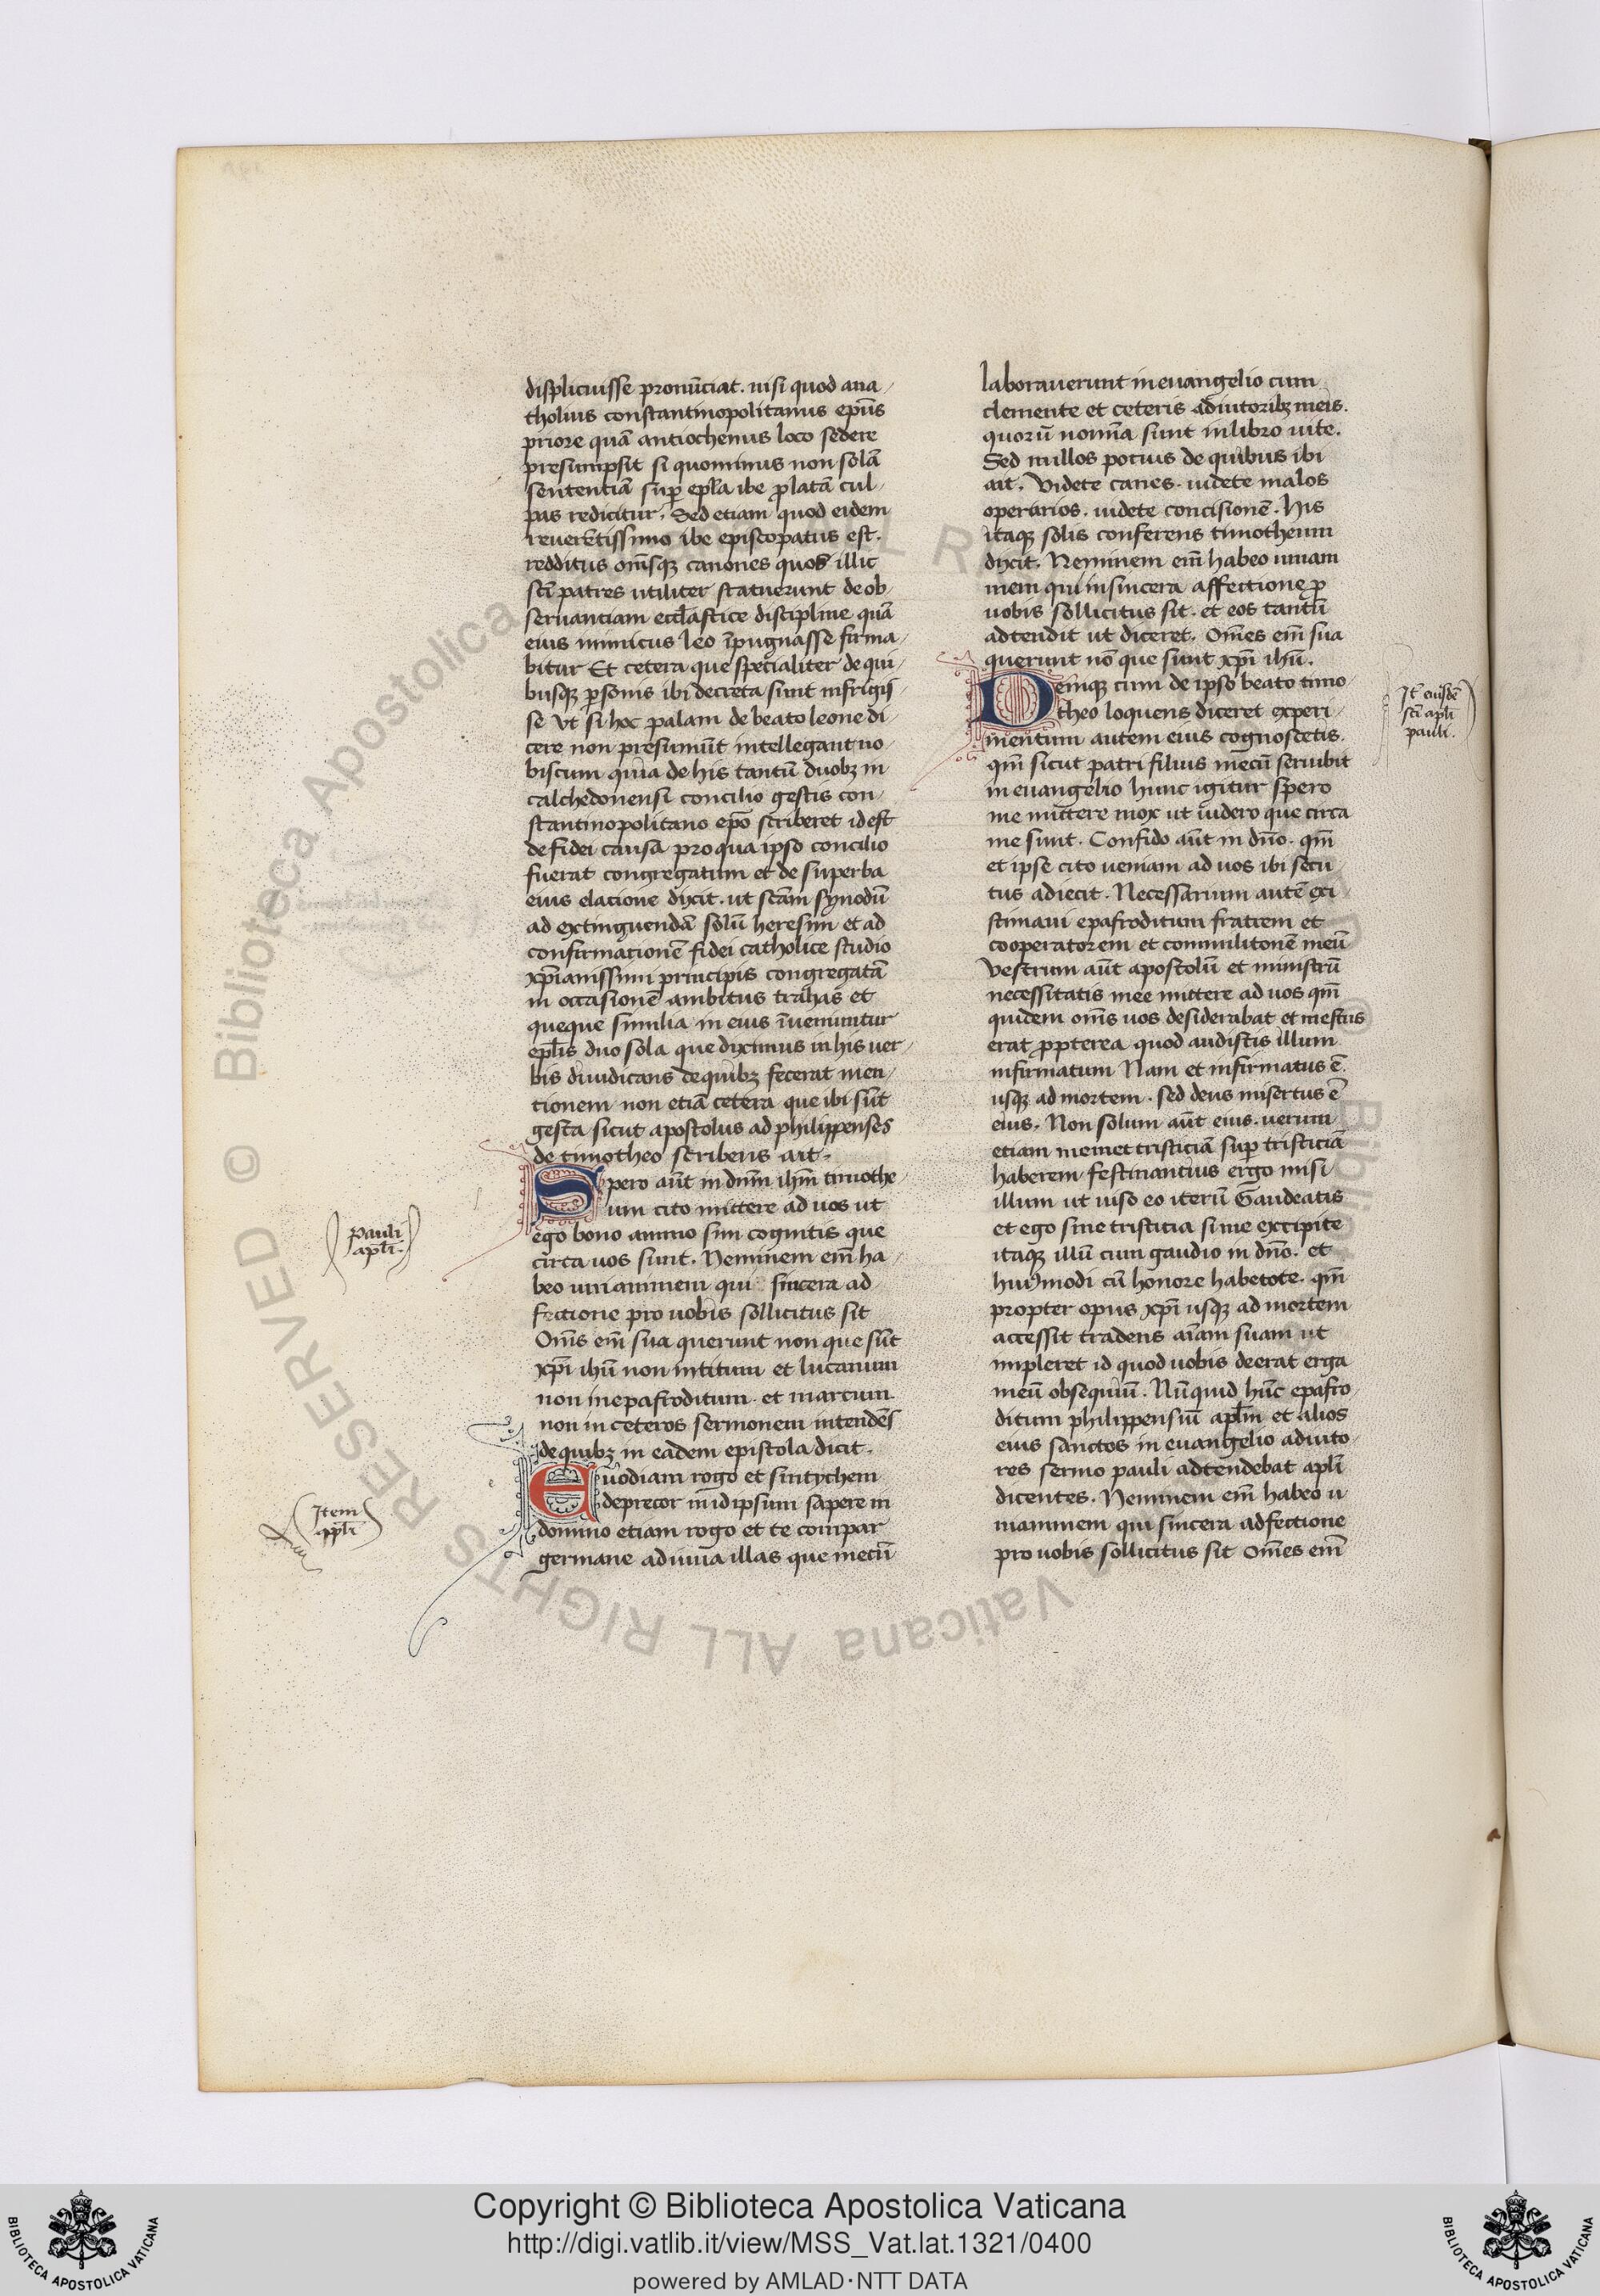 displicuisse pronūciat. nisi quod ana-
tholius constantinopolitanus ep̄us
priore quā antiochenus loco sedere
presumpsit si quominus non solā
sententiā sup̱ ep̄la ibe ꝓlatā cul-
pas redicitur. Sed etiam quod eidem
reuerētissimo ibe episcopatus est.
redditus om̄sqꝫ canones quos illic
sc̄i patres utiliter statuerunt de ob
seruantiam eccl̄astice discipline quā
eius inimicus leo īpugnasse firma-
bitur Et cetera que specialiter de qui-
busqꝫ ꝑsonis ibi decreta sunt infrigis-
se Vt si hoc palam de beato leone di-
cere non presumūt intellegant no-
biscum quia de his tantū duobꝫ in
calchedonensi concilio gestis con-
stantinopolitano ep̄o scriberet id est
de fidei causa pro qua ipso concilio
fuerat congregatum et de superba
eius elacione dixit. ut sc̄am synodū
ad extinguendā solū heresim et ad
confirmationē fidei catholice studio
xp̄ianissimi principis congregatā
in occasionē ambitus trahas et
queque similia in eius īueniuntur
ep̄lis duo sola que diximus in his uer-
bis diiudicans de quibꝫ fecerat men-
tionem non etiā cetera que ibi sūt
gesta sicut apostolus ad philippenses
de timotheo scribens ait.
Spero aūt in dn̄m ih̄m timothe-
um cito mittere ad uos ut
ego bono animo sim cognitis que
circa uos sunt. Neminem em̄ ha-
beo unianimem qui sincera ad
fectione pro uobis sollicitus sit
Om̄s em̄ sua querunt non que sūt
xp̄i ih̄u non intitum et lucanum
non in epafroditum. et marcum
non in ceteros sermonem intendēs
de quibꝫ in eadem epistola dicit.
Euodiam rogo et sintychem
deprecor in id ipsum sapere in
domino etiam rogo et te compar
germane adiuua illas que mecū
Pauli
apl̄i.
Item
apl̄i
laborauerunt in euangelio cum
clemente et ceteris adiutoribꝫ meis.
quorū nomīa sunt in libro uite.
Sed nullos potius de quibus ibi
ait. Videte canes. uidete malos
operarios. uidete concisionē. His
itaqꝫ solis conferens timotheum
dixit. Neminem em̄ habeo unam
mem qui in sincera affectione ꝓ
uobis sollicitus sit. et eos tantū
adtendit ut diceret. Om̄es em̄ sua
querunt nō que sunt xp̄i ih̄u.
Deinqꝫ cum de ipso beato timo-
theo loquens diceret experi-
mentum autem eius cognoscetis.
qm̄ sicut patri filius mecū seruibit
in euangelio hunc igitur spero
me mittere mox ut uidero que circa
me sunt. Confido aūt in dn̄o. qm̄
et ipse cito ueniam ad uos ibi secu-
tus adiecit. Necessarium autē exi-
stimaui epafroditum fratrem et
cooperatorem et commilitonē meū
Vestrum aūt apostolū et ministrū
necessitatis mee mittere ad uos qm̄
quidem om̄s uos desiderabat et mestus
erat ꝓpterea quod audistis illum
infirmatum Nam et infirmatus ē.
usqꝫ ad mortem. sed deus misertus ē
eius. Non solum aūt eius. uerum
etiam me met tristiciā sup̱ tristiciā
haberem festinantius ergo misi
illum ut uiso eo iterū Gaudeatis
et ego sine tristicia sim excipite
itaqꝫ illū cum gaudio in dn̄o. et
hui9modi cū honore habetote. qm̄
propter opus xp̄i usqꝫ ad mortem
accessit tradens aīam suam ut
impleret id quod uobis deerat erga
meū obsequiū. Nūquid hūc epafro
ditum philippensiū apl̄m et alios
eius sanctos in euangelio adiuto-
res sermo pauli adtendebat apl̄i
dicentes. Neminem em̄ habeo u
nanimem qui sincera adfectione
pro uobis sollicitus sit Om̄es em̄
It̄ eiusdē
sc̄i apl̄i
pauli.
© Biblioteca Apostolica Vaticana ALL RIGHTS RESERVED
Copyright © Biblioteca Apostolica Vaticana
http://digi.vatlib.it/view/MSS_Vat.lat.1321/0400
powered by AMLAD·NTT DATA
BIBLIOTECA APOSTOLICA VATICANA
BIBLIOTECA APOSTOLICA VATICANA